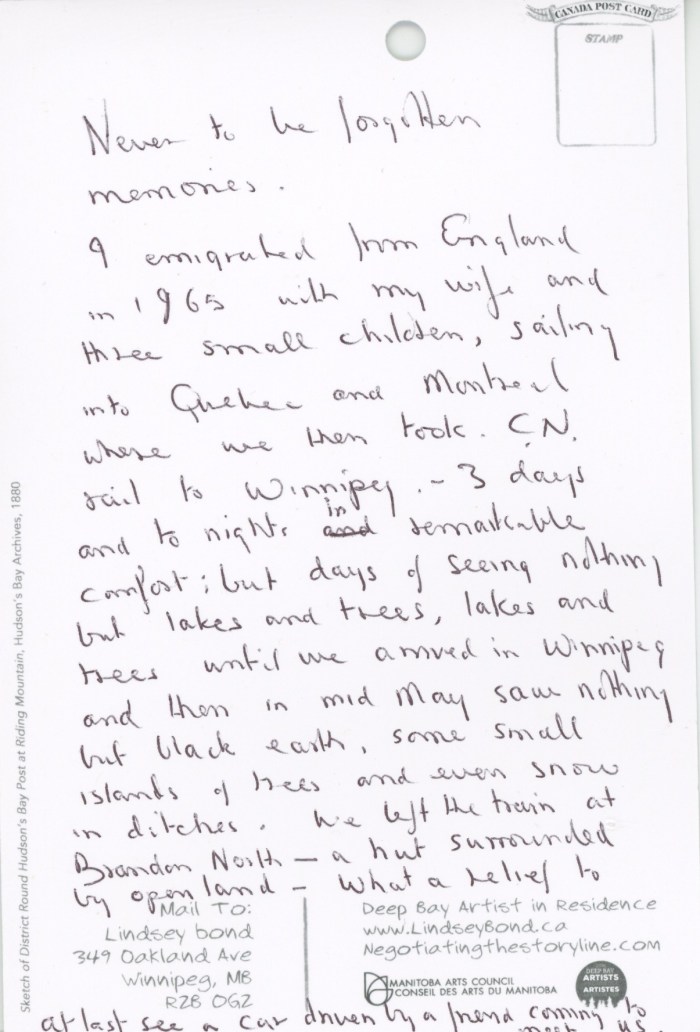 CANADA POST CARD
STAMP
Never to be forgotten
memories.
I emigrated from England
in 1965 with my wife and
three small children, sailing
into Quebec and Montreal
where we then took. C.N.
rail to Winnipeg. - 3 days
and to nights in and remarkable
comfort; but days of seeing nothing
but lakes and trees, lakes and
trees until we arrived in Winnipeg
and then in mid May saw nothing
but black earth, some small
islands of trees and even snow
in ditches. We left the train at
Brandon North - a hut surrounded
by open land - What a relief to
at last see a car driven by a friend coming to
meet us.
Mail To:
Lindsey bond
349 Oakland Ave
Winnipeg, MB
R2B 0G2
Deep Bay Artist in Residence
www.LindseyBond.ca
Negotiatingthestoryline.com
MANITOBA ARTS COUNCIL
CONSEIL DES ARTS DU MANITOBA
DEEP BAY
ARTISTS
ARTISTES
Sketch of District Round Hudson's Bay Post at Riding Mountain, Hudson's Bay Archives, 1880